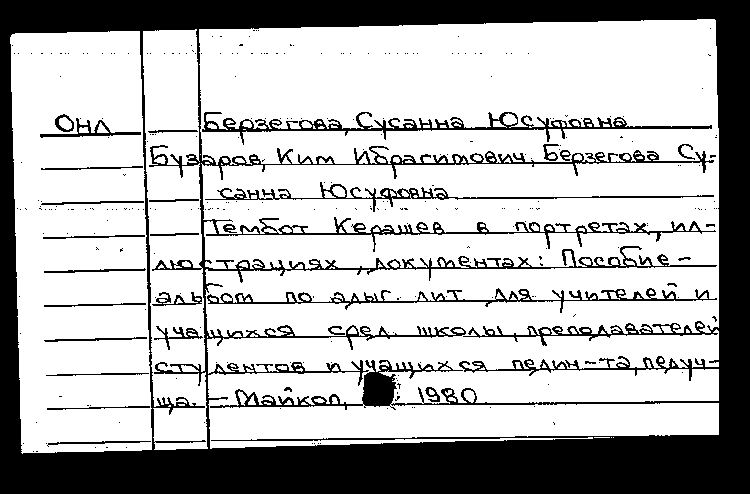 ОНЛ Берзегова, Сусанна Юсуфовна
Бузаров, Ким Ибрагимович, Берзегова Су-
санна Юсуфовна
Тембот Керашев в портретах, ил-
люстрациях, документах: Пособие-
альбом по адыг. лит для учителей и
учащихся сред. школы, преподавателей
студентов и учащихся педин-та, педуч-
ща. - Майкоп, 1980